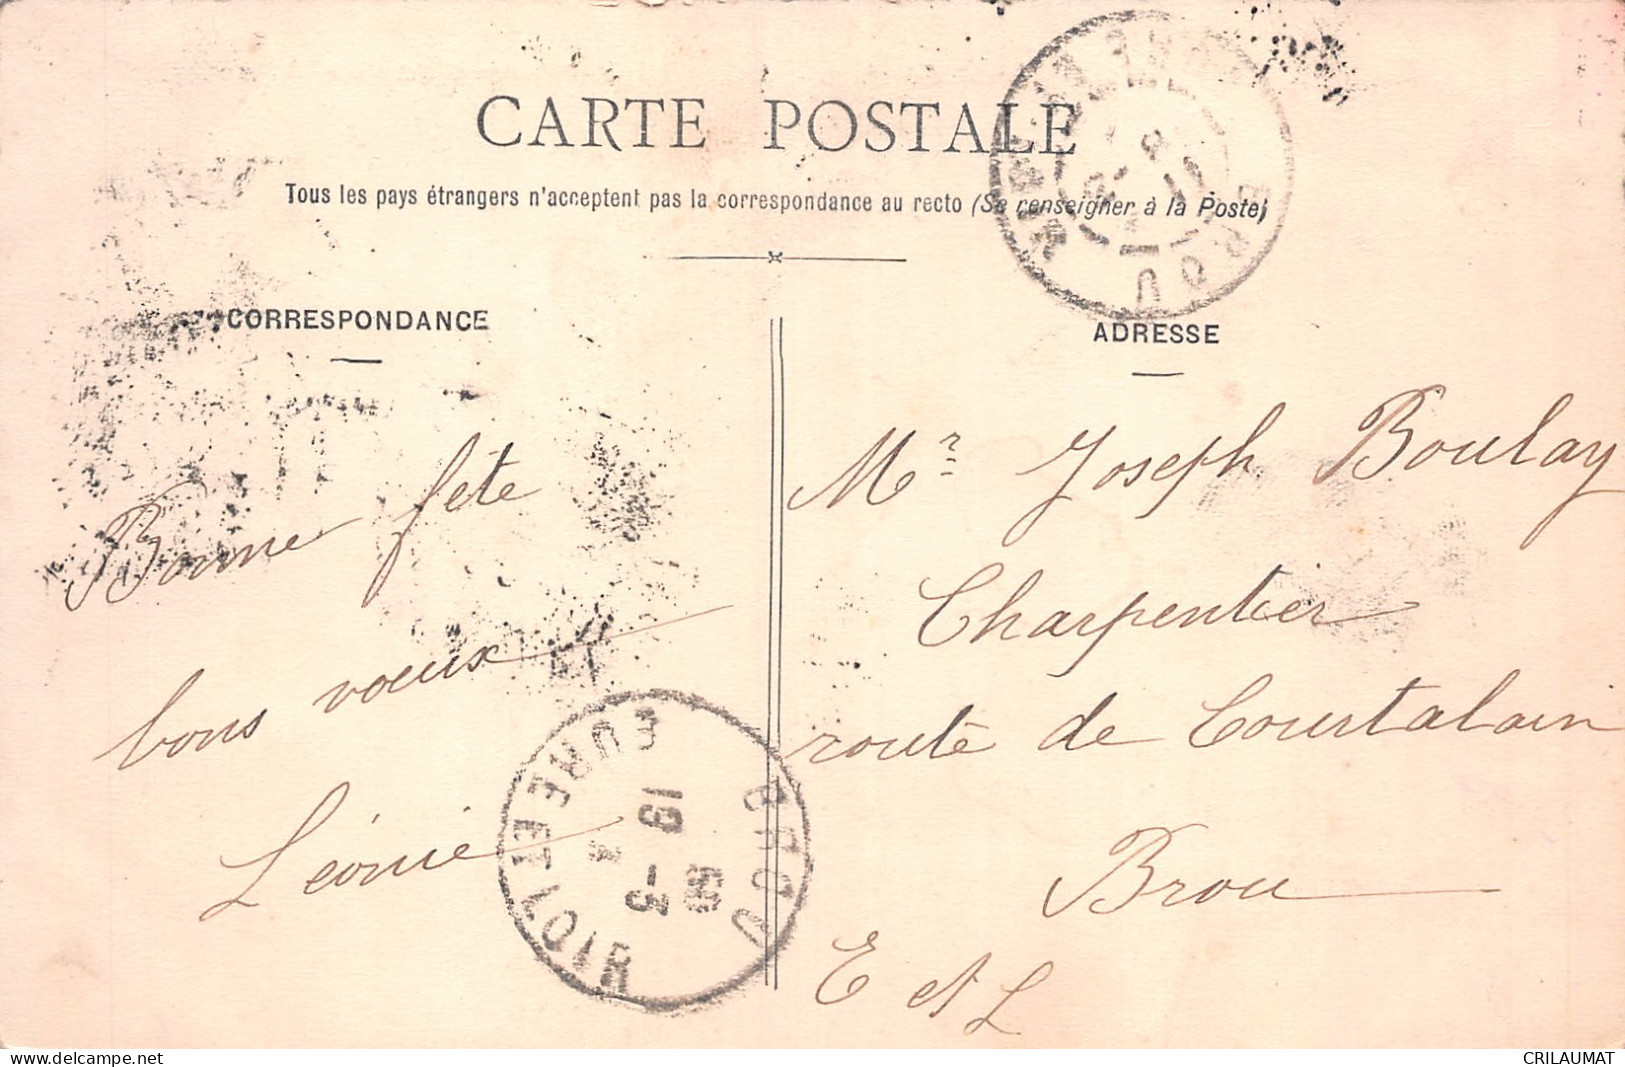 CARTE POSTALE
Tous les pays étrangers n'acceptent pas la correspondance au recto (Se renseigner à la Poste)
CORRESPONDANCE
Bonne fête
bons voeux
Léonie
ADRESSE
Mr Joseph Boulay
Charpentier
route de Courtalain
Brou
E et L
BROU
EURE-ET-LOIR
19 -3
BROU
delcampe.net
CRILAUMAT